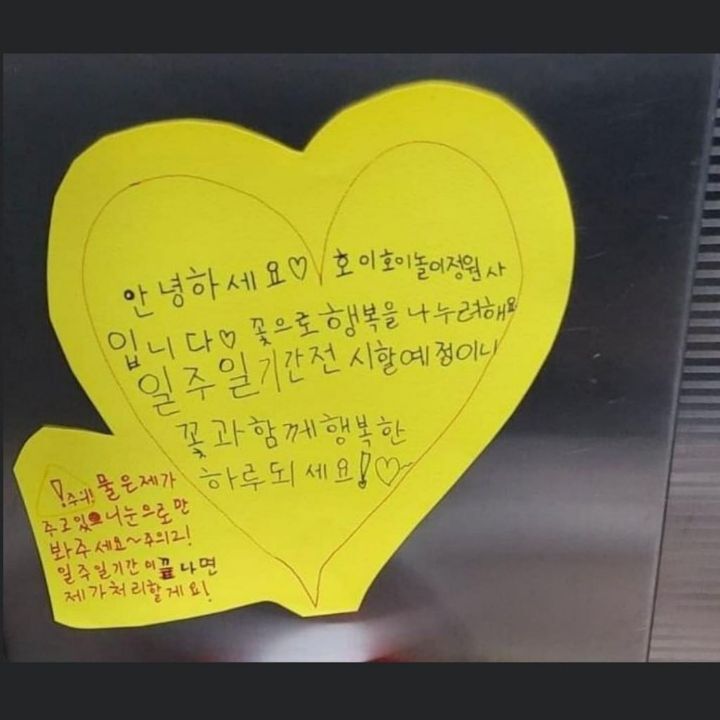 안녕하세요♡ 호이호이놀이정원사
입니다♡ 꽃으로행복을나누려해요
일주일기간전시할예정이니
꽃과함께행복한
하루되세요!♡~
!주의! 물은제가
주고있으니눈으로만
봐주세요~주의2!
일주일기간이끝나면
제가처리할게요!